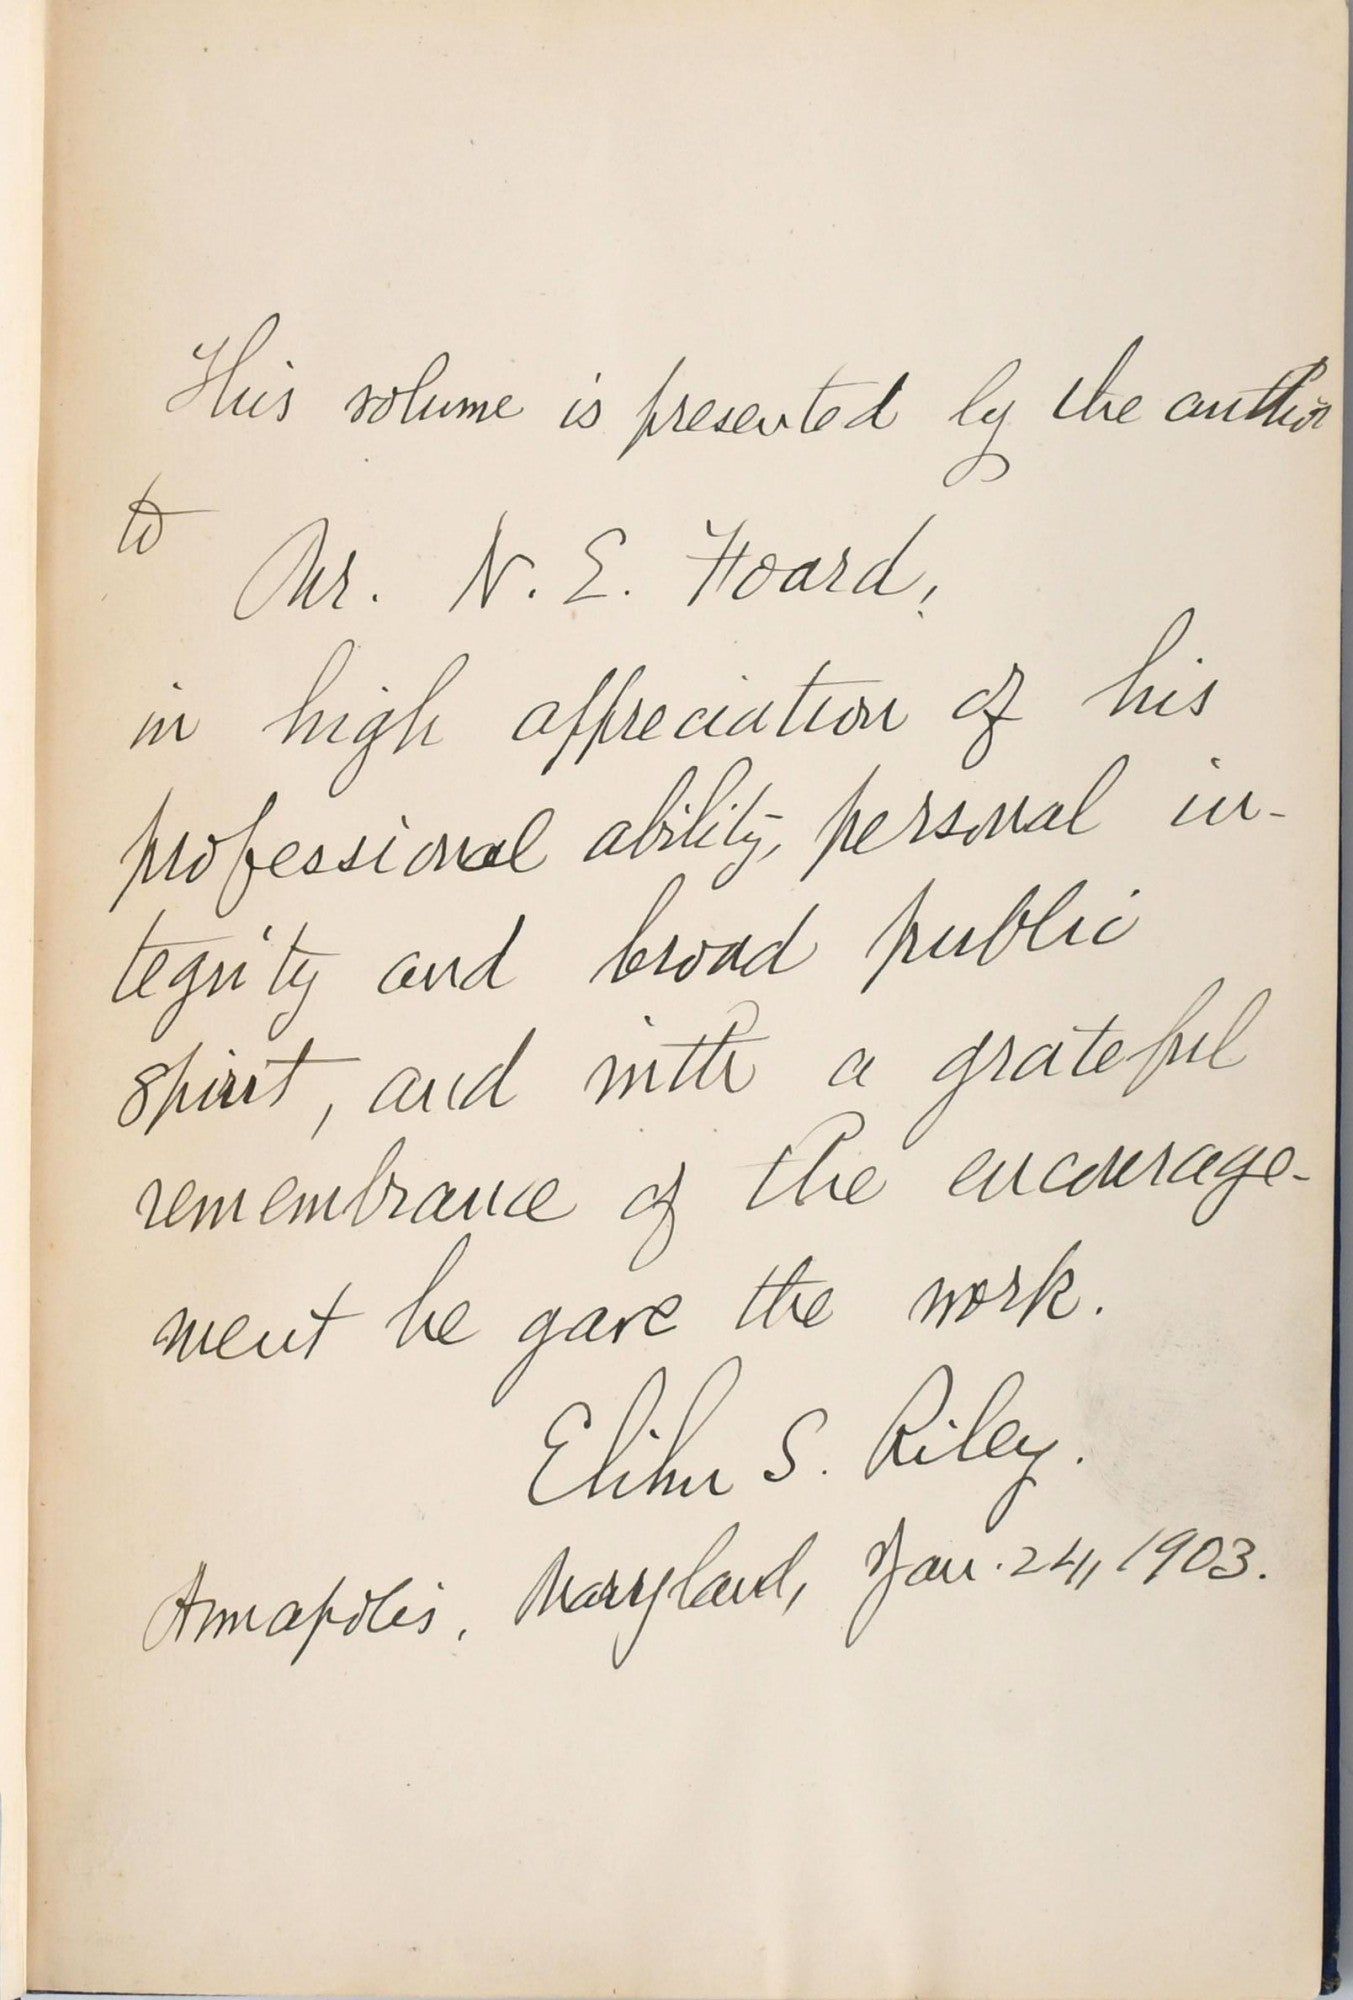 This volume is presented by the author
to
Mr. N. E. Foard,
in high appreciation of his
professional ability, personal in-
tegrity and broad public
spirit, and with a grateful
remembrance of the encourage-
ment he gave the work.
Elihu S. Riley.
Annapolis, Maryland, Jan. 24, 1903.